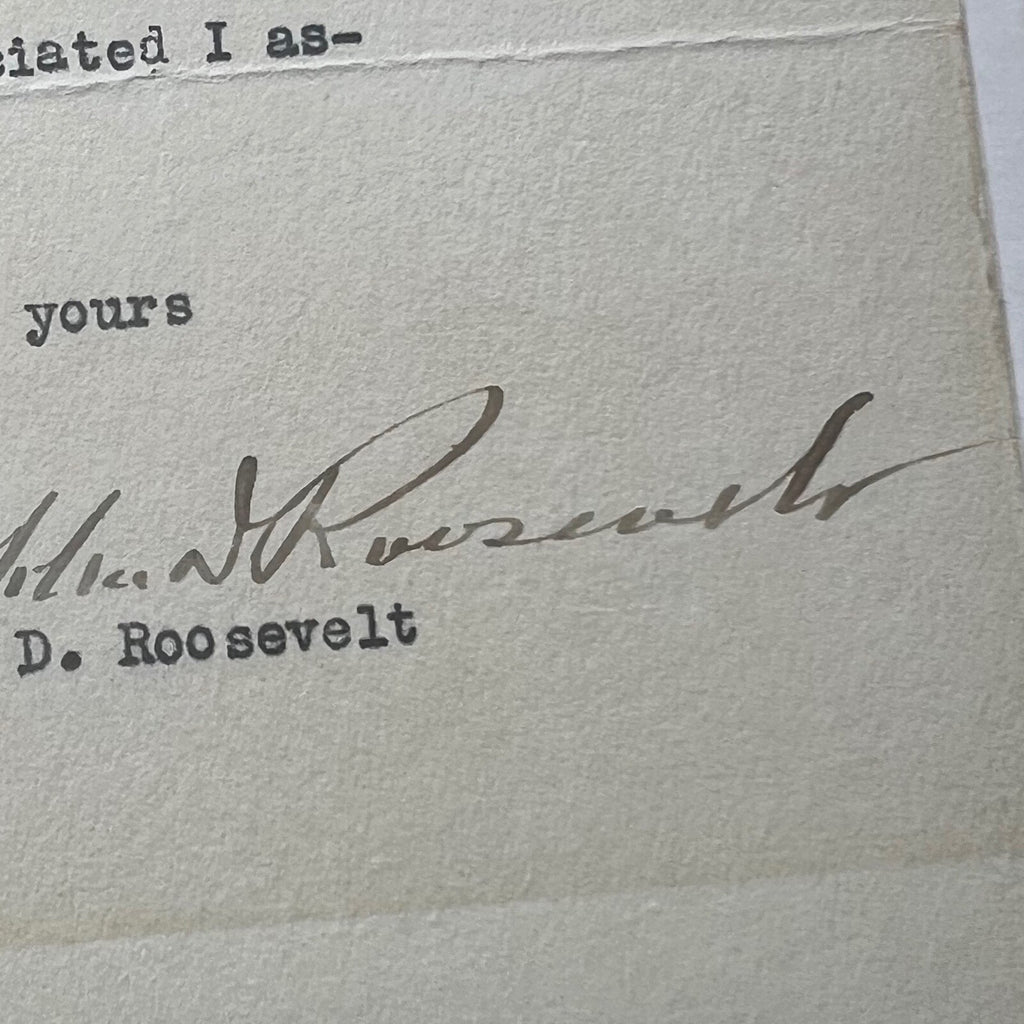 ciated I as-
yours
D Roosevelt
D. Roosevelt